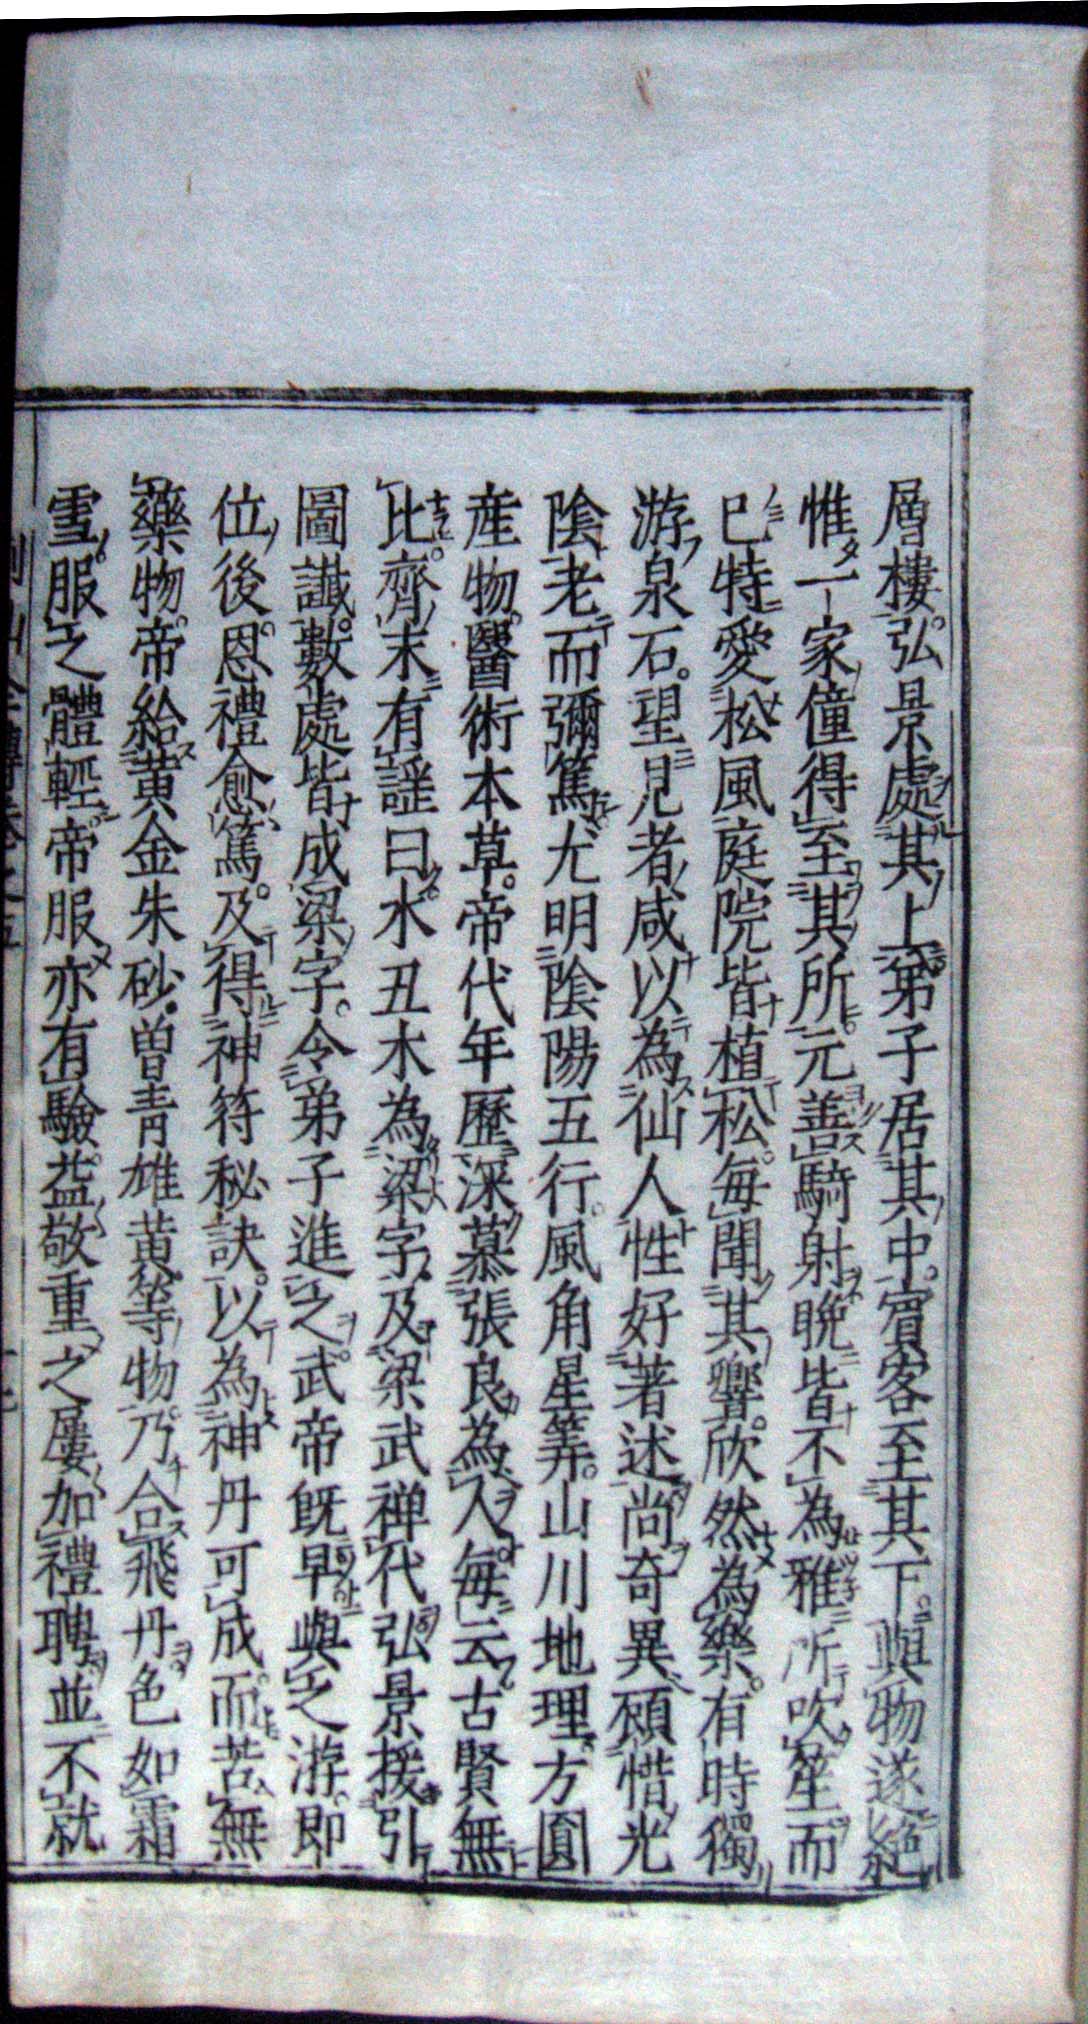 層樓弘景處其上弟子居其中賓客至其下與物遂絶
惟一家僮得至其所元善騎射晩皆不為雅所吹笙而
已特愛松風庭院皆植松毎聞其響欣然為樂有時獨
游泉石望見者咸以為仙人性好著述尚奇異顧惜光
陰老而彌篤尤明陰陽五行風角星筭山川地理方圓
産物醫術本草帝代年歷深慕張良為人毎云古賢無
比齊末有謡曰水丑木為梁字及梁武禅代弘景援引
圖讖數處皆成梁字令弟子進之武帝既早與之游即
位後恩禮愈篤及得神符秘訣以為神丹可成而苦無
藥物帝給黄金朱砂曽青雄黄等物乃合飛丹色如霜
雪服之體輕帝服亦有驗益敬重之屢加禮聘並不就